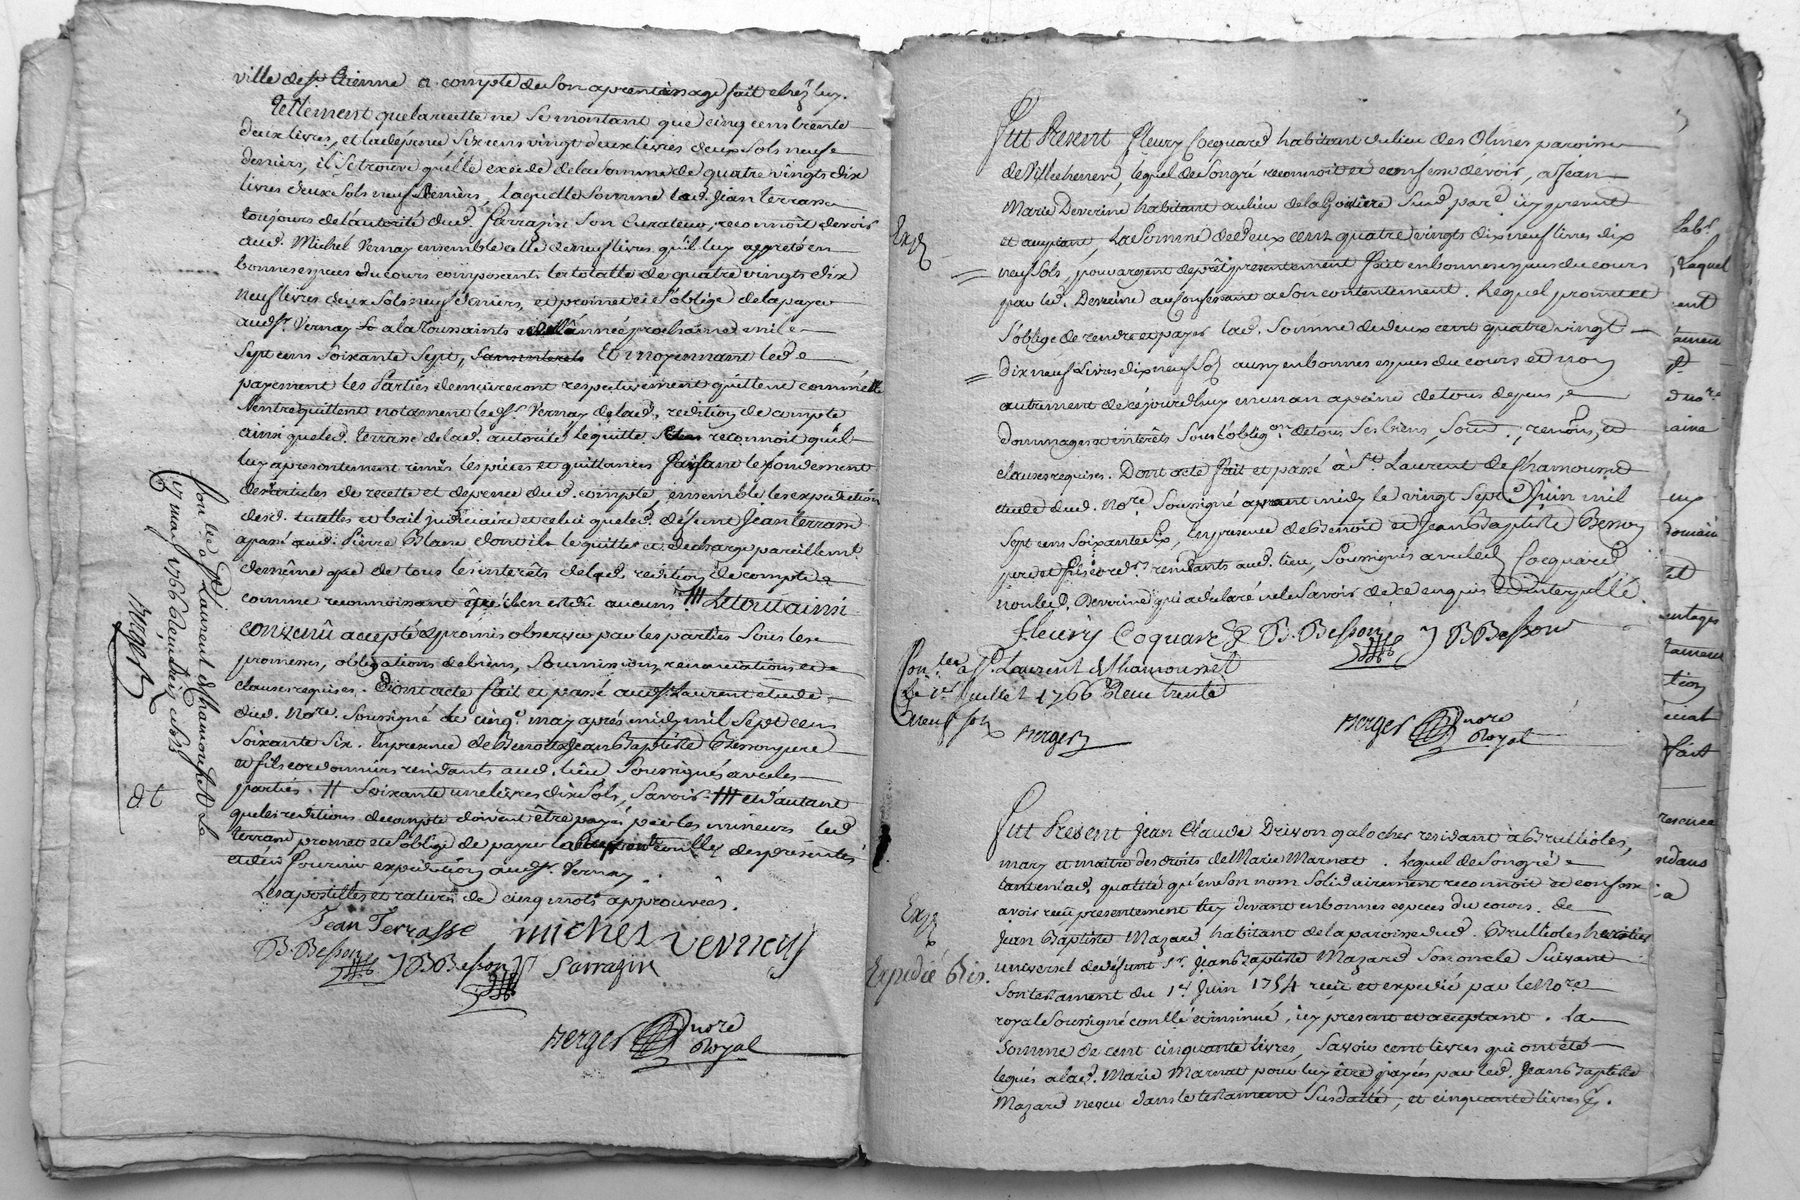 ville de st. Etienne a compte de son aprentissage fait chéz luy.
Tellement que la recette ne se montant que cinq cens trente
deux livres, et la dépense six cens vingt deux livres deux sols neuf
deniers, il se trouve qu'elle excède de la somme de quatre vingts dix
livres deux sols neuf deniers, laquelle somme led. Jean Terrasse
toujours de l'autorité dud. Sarrazin son curateur, reconnoit devoir
aud. Michel Vernay ensemble celle de neuf livres qu'il luy a preté en
bonnes espèces du cours composants la totalle de quatre vingts dix
neuf livres deux sols neuf deniers, et promet et s'oblige de la payer
aud. sr. Vernay à la Toussaints de l'année prochaine mil
sept cens soixante sept, sans interets Et moyennant led.
payement les parties demeureront respectivement quittes comme elles
s'entrequittent notament led. sr. Vernay de lad. reddition de compte
ainsi que led. Terrasse de lad. autorité le quitte reconnoit qu'il
luy a presentement remis les pièces et quittances faisant le fondement
des articles de recette et depense dud. compte, ensemble les expeditions
desd. tutelles et bail judiciaire et celui que led. défunt Jean Terrasse
a passé aud. Pierre Blanc dont il le quitte et décharge pareillemt.
de même que de tous les interêts de lad. reddition de compte
comme reconnoissant qu'il n'en est dû aucuns /// Le tout ainsi
convenû accepté et promis observer par les parties sous les
promesses, obligations de biens, soumissions, renonciations et
clauses requises. Dont acte fait et passé aud. st. Laurent etude
dud. Nore. soussigné le cinq may après midy mil sept cens
soixante six. En presence de Benoit et Jean Baptiste Besson pere
et fils cordonniers residants aud. lieu soussignés avec les
parties. // soixante une livres dix sols, savoir /// et d'autant
que les redditions de compte doivent être payées par les mineurs led.
Terrasse promet et s'oblige de payer le controlle des présentes
et d'en fournir expedition aud. sr. Vernay.
Les apostilles et ratures de cinq mots approuvées.
Jean Terrasse michel vernay
B. Besson J B Besson Sarrazin
Berger nore Royal
Con.lé a St. Laurent de Chamousset le
17 may 1766
Berger
Fut Present Fleury Cocquard habitant du lieu des Olmes paroisse
de Villechenève, lequel de son gré reconnoit et confesse devoir, a Jean
Marie Deverine habitant au lieu de la Goutiere susd. par. icy present
et acceptant, La somme de deux cent quatre vingts dix neuf livres dix
Exp.
neuf sols, pour argent de prêt presentement fait en bonnes espèces du cours
par led. Deverine ainsi confessant a son contentement. Lequel promet et
s'oblige de rendre et payer lad. somme de deux cent quatre vingt
dix neuf livres dix neuf sols aussy en bonnes espèces du cours et non
autrement de ce jourd'huy en un an a peine de tous depens,
dommages et interêts sous l'obligon. de tous ses biens, soum., renons, et
clauses requises. Dont acte fait et passé à St. Laurent de Chamousset
etude dud. Nore. soussigné avant midy le vingt sept Juin mil
sept cens soixante six, En presence de Benoit et Jean Baptiste Besson
pere et fils cordrs. residants aud. lieu, soussignés avec led. Cocquard
non led. Deverine qui a declaré ne le savoir de ce enquis et interpellé.
fleury Coquard B. Besson J B Besson
Con.lé a St. Laurent de Chamousset
Le 1er Juillet 1766 Reçu trente
neuf sols
Berger
Berger nore Royal
Fut Present Jean Claude Drivon galocher residant à Brullioles,
mary et maitre des droits de Marie Marnat. Lequel de son gré
tant en lad. qualité qu'en son nom solidairement reconnoit et confesse
avoir reçu presentement icy devant en bonnes especes du cours. de
Exp.
Jean Baptiste Mazard habitant de la paroisse dud. Brullioles heritier
universel de défunt sr. Jean Baptiste Mazard son oncle suivant
Expedié Bis.
son testament du 1er Juin 1754 reçu et expedié par le Nore.
royal soussigné conllé et insinué, icy present et acceptant. La
somme de cent cinquante livres, savoir cent livres qui ont été
legués a lad. Marie Marnat pour luy être payés par led. Jean Baptiste
Mazard neveu dans le testament susdatté, et cinquante livres